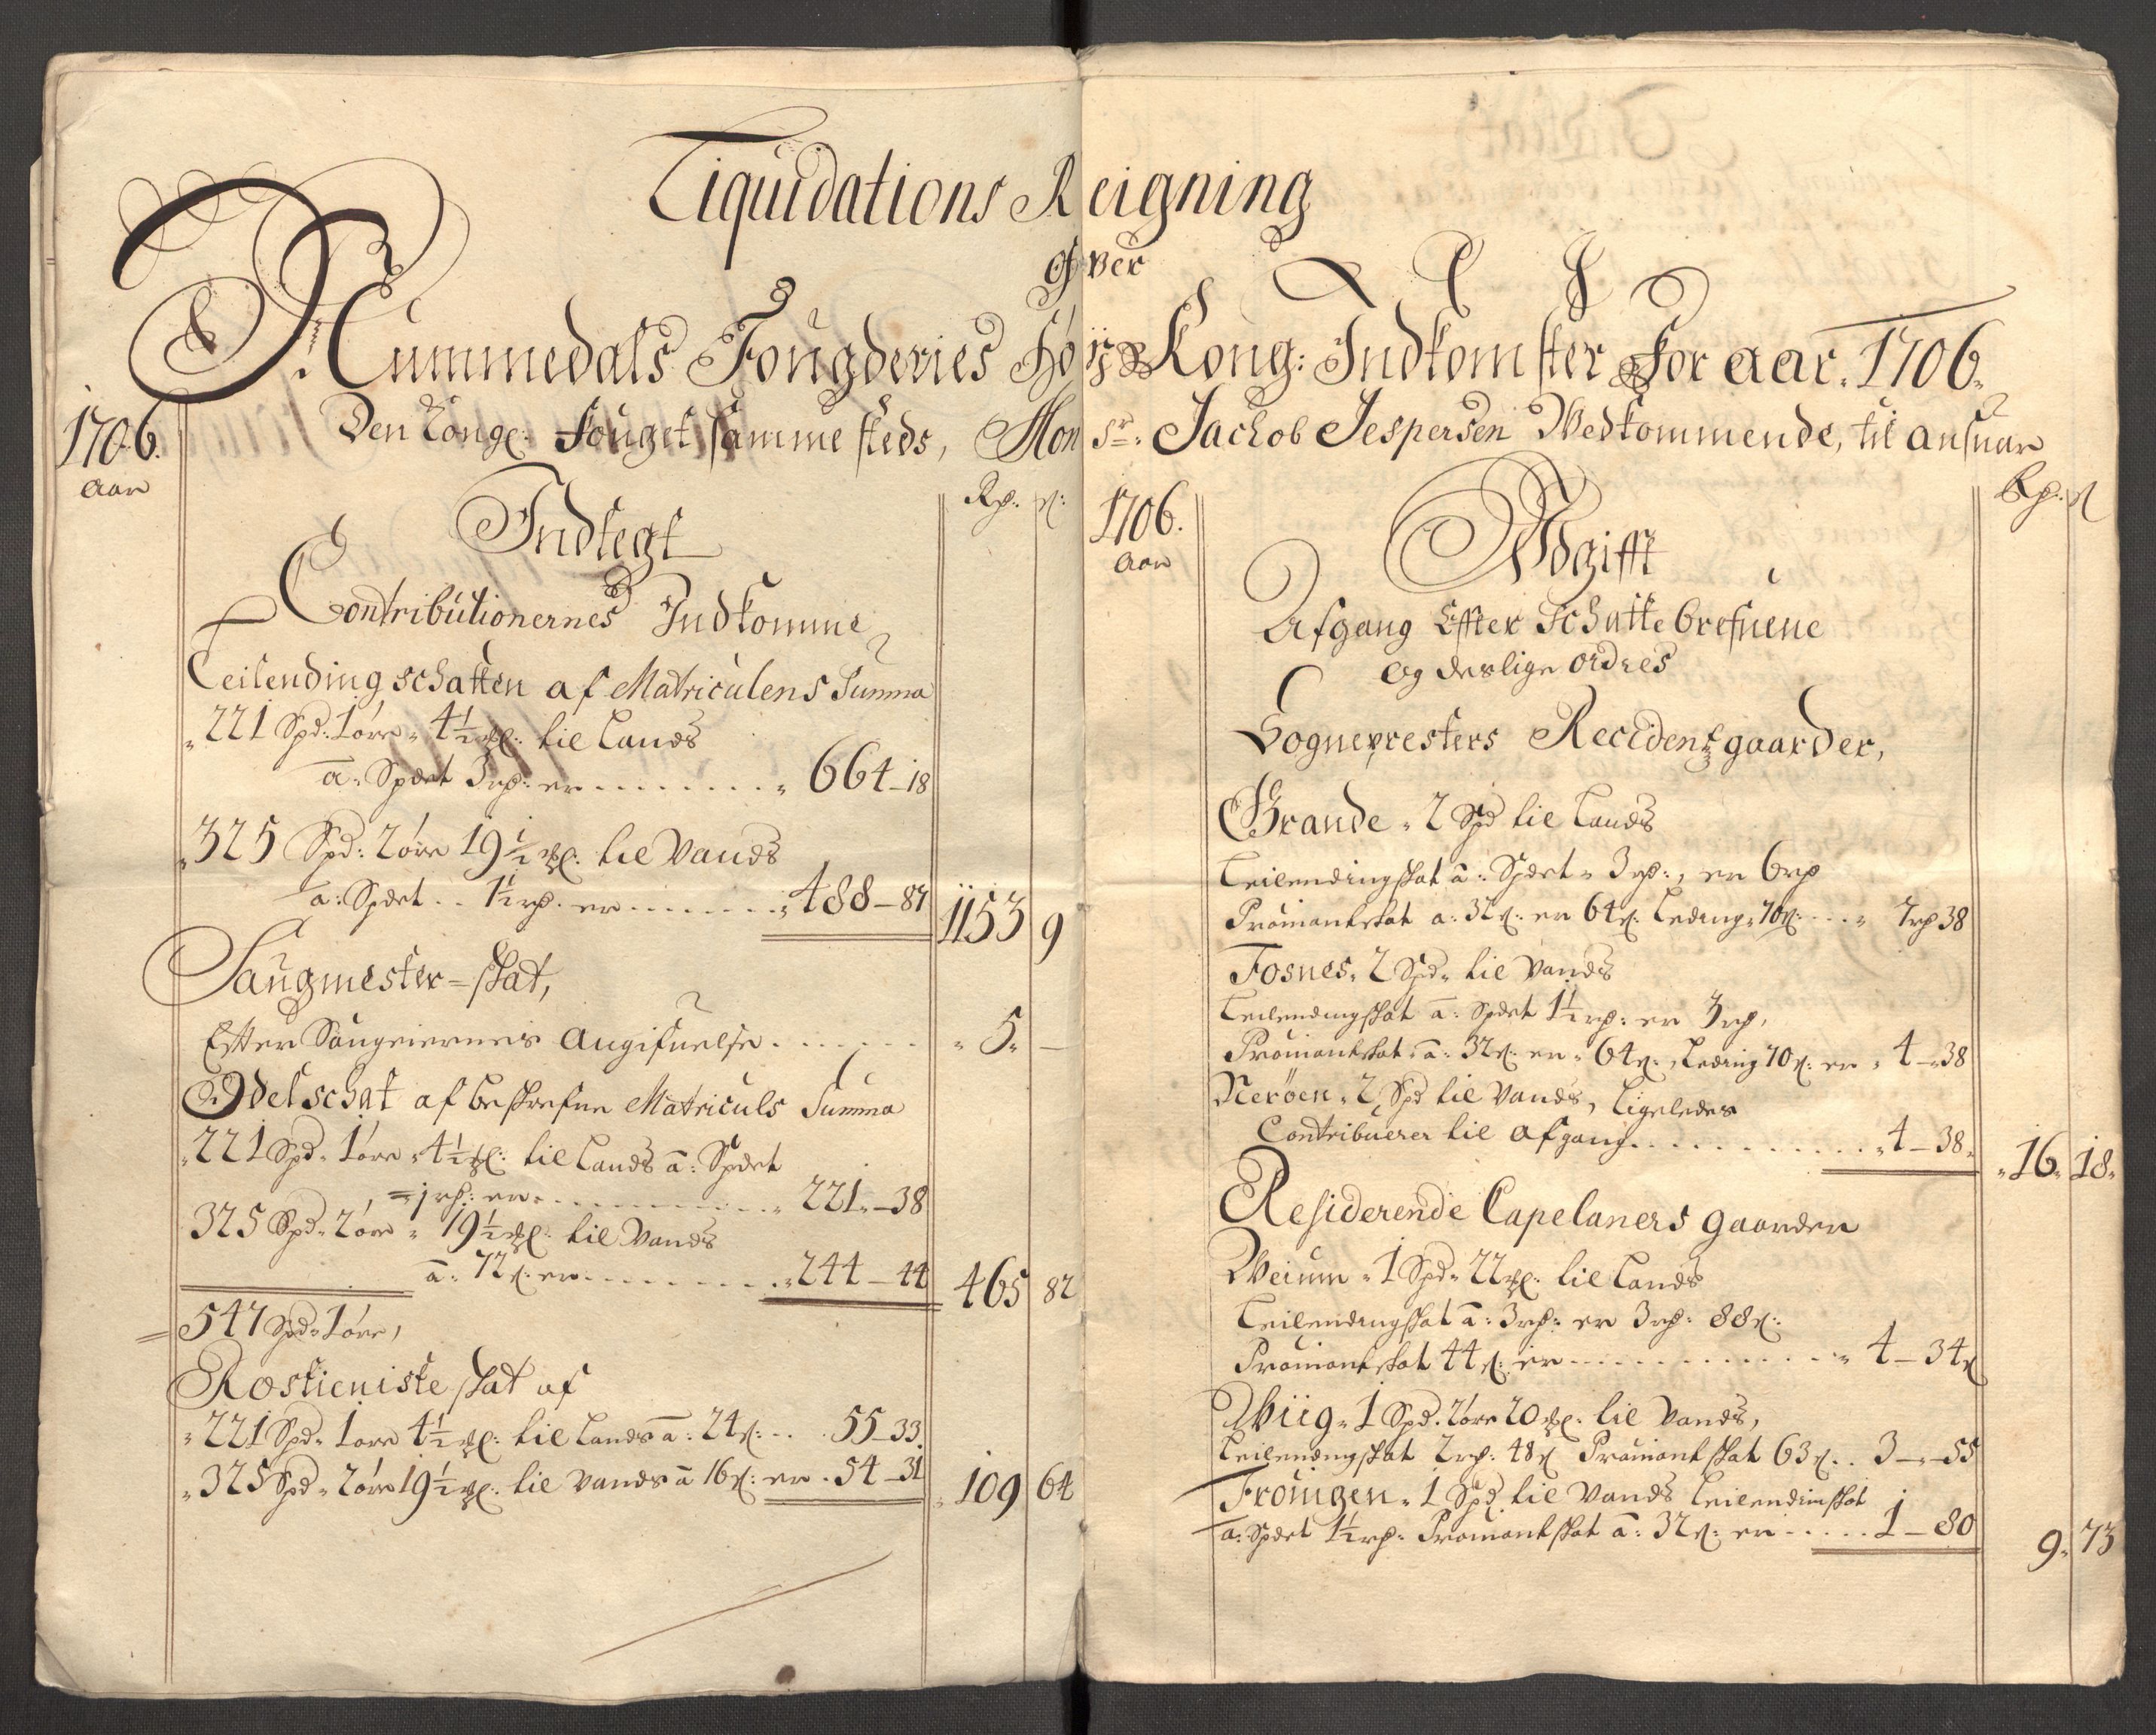 Liquidations Reigning
ofver
Nummedals Fougderies Høijst Kong: Indkomster For aar. 1706.
Den Kongl: Fouget sammesteds, Monsr: Jachob Jespersen Vedkommende, til ansuar
1706.
Aar
Rd: ß:
Indtegt
Contributionernes Indkomme
Leilending schatten af Matriculens Summa
221 Spd: 1 øre 4½ ℳ: til Lands
a: Spdet 3 rd: er . . . . . . . . 664-18
325 Spd: 2 øre 19½ ℳ: til Vands
a: Spdet . . 1½ rd. er . . . . . . . 488-87 1153 9
Saugmester=skat,
Efter Saugeiernes Angifuelse . . . . . . 5 -
Odelschat af beskrefne Matriculs Summa
221 Spd. 1 øre 4½ ℳ: til Lands a: Spdet
1 rd: er . . . . . . . . . . 221-38
325 Spd. 2 øre 19½ ℳ: til Vands
a: 72 ß: er . . . . . . . . 244-44 465 82
547 Spd. 1 øre,
Rostieniste skat af
221 Spd. 1 øre 4½ ℳ: til Lands a: 24 ß: . . . 55-33
325 Spd. 2 øre 19½ ℳ: til Vands a 16 ß: er . 54-31 109 64
1706.
Aar
Rd: ß
Udgifft
Afgang Effter Schatte brefuene
og deslige ordres
Sognepresters Recidentz gaarder,
Grande 2 Spd til Lands
Leilendingskat a: Spdet 3 rd:, er 6 rd
Proviantskat a: 32 ß: er 64 ß: Leding 70 ß: . . . 7 rd 38
Fosnes. 2 Spd. til Vands
Leilendingskat a: Spdet 1½ rd: er 3 rd,
Proviantskat a: 32 ß: er 64 ß:, Leding 70 ß: er 4-38
Nerøen. 2 Spd til Vands, ligeledes
Contribuerer til Afgang . . . . . . . . . . . . 4-38 16 18
Residerende Capelaners gaarder
Weium 1 Spd. 22 ℳ: til Lands
Leilendingskat a: 3 rd: er 3 rd: 88 ß:
Proviantskat 44 ß: er . . . . . . . . . . . . 4-34 ß
Wiig. 1 Spd. 2 øre 20 ℳ: til Vands,
Leilendingskat 2 rd: 48 ß Proviantskat 63 ß . . 3-55
Frøingen. 1 Spd til Vands Leilendingskat
a: Spdet 1½ rd: Proviantskat a: 32 ß: er . . . . . 1-80 9 73